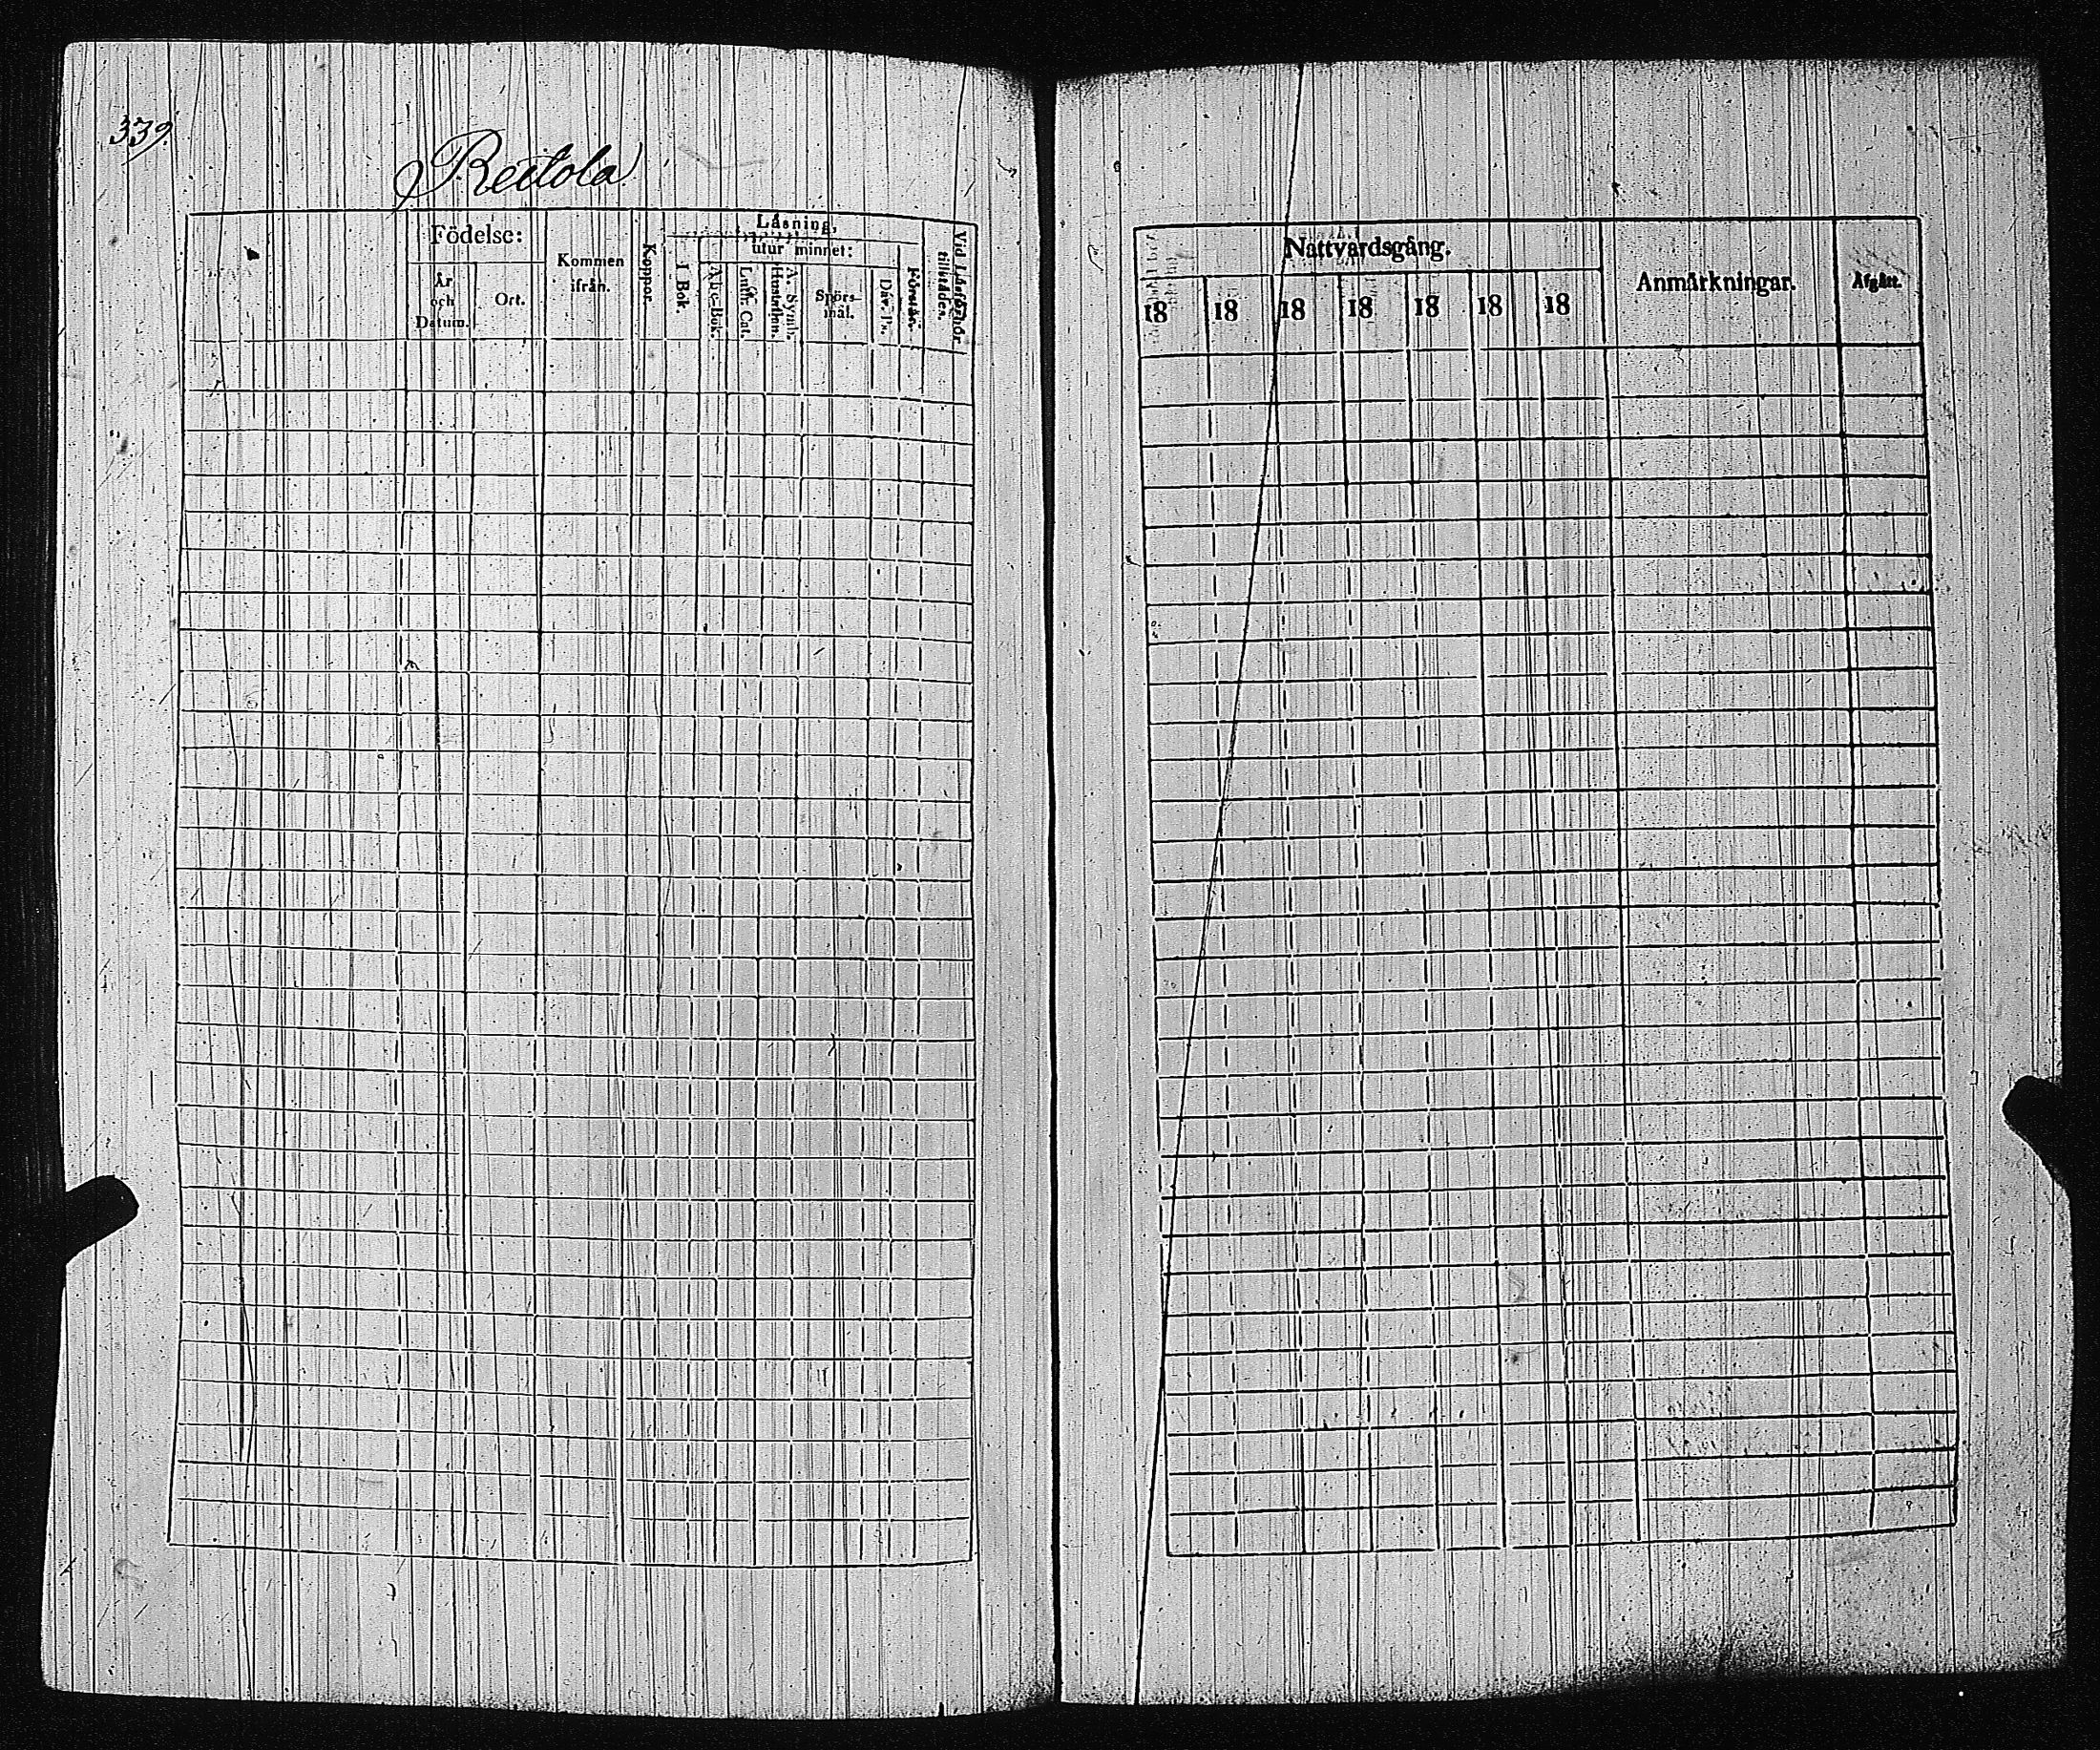 339.
Reitola
Födelse:
År och Datum.
Ort.
Kommen ifrån.
Koppor.
Läsning,
I Bok.
utur minnet:
Abc-Bok.
Luth. Cat.
A. Symb. Hustaflan.
Spörs-mål.
Dav. Ps.
Förstår.
Vid Läsförhör tillstädes.
Nattvardsgång.
18 18 18 18 18 18 18
Anmärkningar.
Afgått.